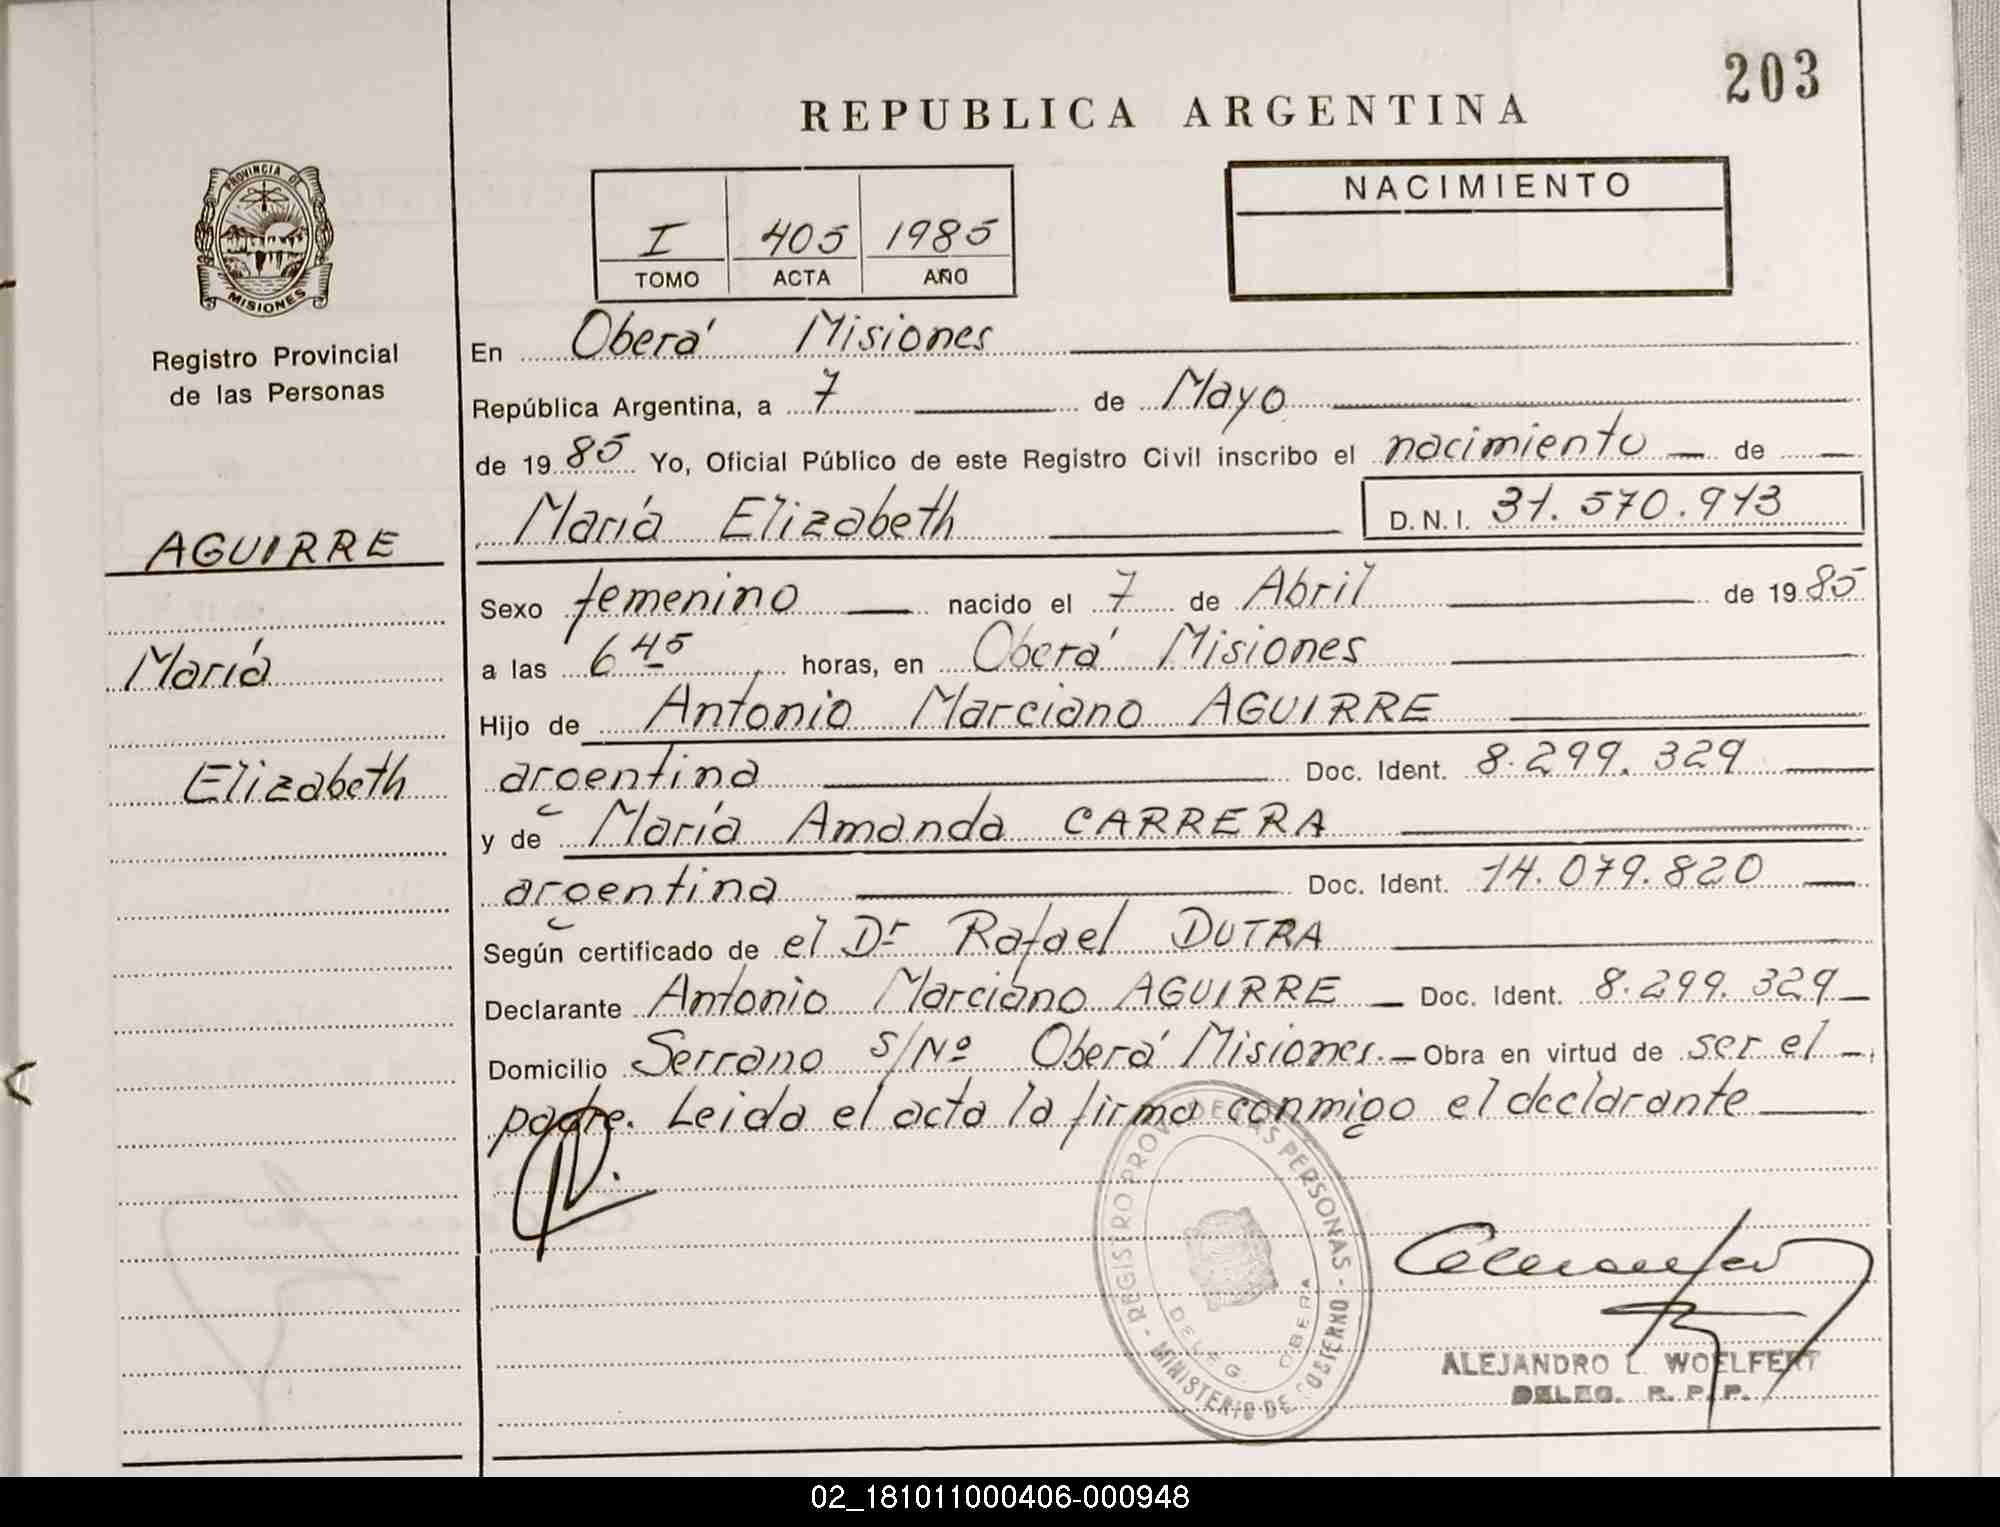 203
REPUBLICA ARGENTINA
PROVINCIA DE
MISIONES
Registro Provincial
de las Personas
I 405 1985
TOMO ACTA AÑO
NACIMIENTO
En Oberá Misiones
República Argentina, a 7 de Mayo
de 1985 Yo, Oficial Público de este Registro Civil inscribo el nacimiento de
María Elizabeth D.N.I. 31.570.913
AGUIRRE
María
Elizabeth
Sexo femenino nacido el 7 de Abril de 1985
a las 6 45 horas, en Oberá Misiones
Hijo de Antonio Marciano AGUIRRE
argentina Doc. Ident. 8.299.329
y de María Amanda CARRERA
argentina Doc. Ident. 14.079.820
Según certificado de el Dr Rafael DUTRA
Declarante Antonio Marciano AGUIRRE Doc. Ident. 8.299.329
Domicilio Serrano s/Nº Oberá Misiones.- Obra en virtud de ser el
padre. Leida el acta la firma conmigo el declarante
REGISTRO PROV. DE LAS PERSONAS - MINISTERIO DE GOBIERNO -
DELEG. OBERA
ALEJANDRO L. WOELFERT
DELEG. R. P. P.
02_181011000406-000948